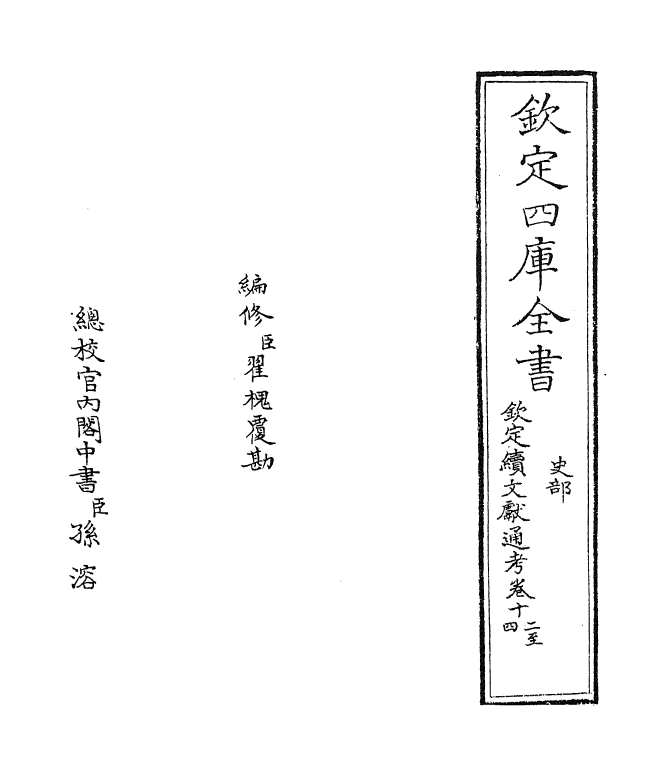 欽定四庫全書
史部
欽定續文獻通考卷十二至十四
編修臣翟槐覆勘
總校官內閣中書臣孫溶